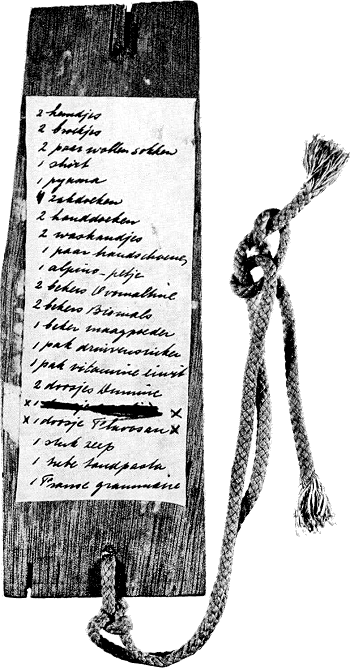 2 hemdjes
2 broekjes
2 paar wollen sokken
1 shirt
1 pyama
4 zakdoeken
2 handdoeken
2 washandjes
1 paar handschoenen
1 alpino-petje
2 bekers Ovomaltine
2 bekers
1 beker maagpoeder
1 pak druivensuiker
1 pak vitamine
2 doosjes
x 1 x
x 1 doosje x
1 stuk zeep
1 tube tandpasta
1 Franse grammaire